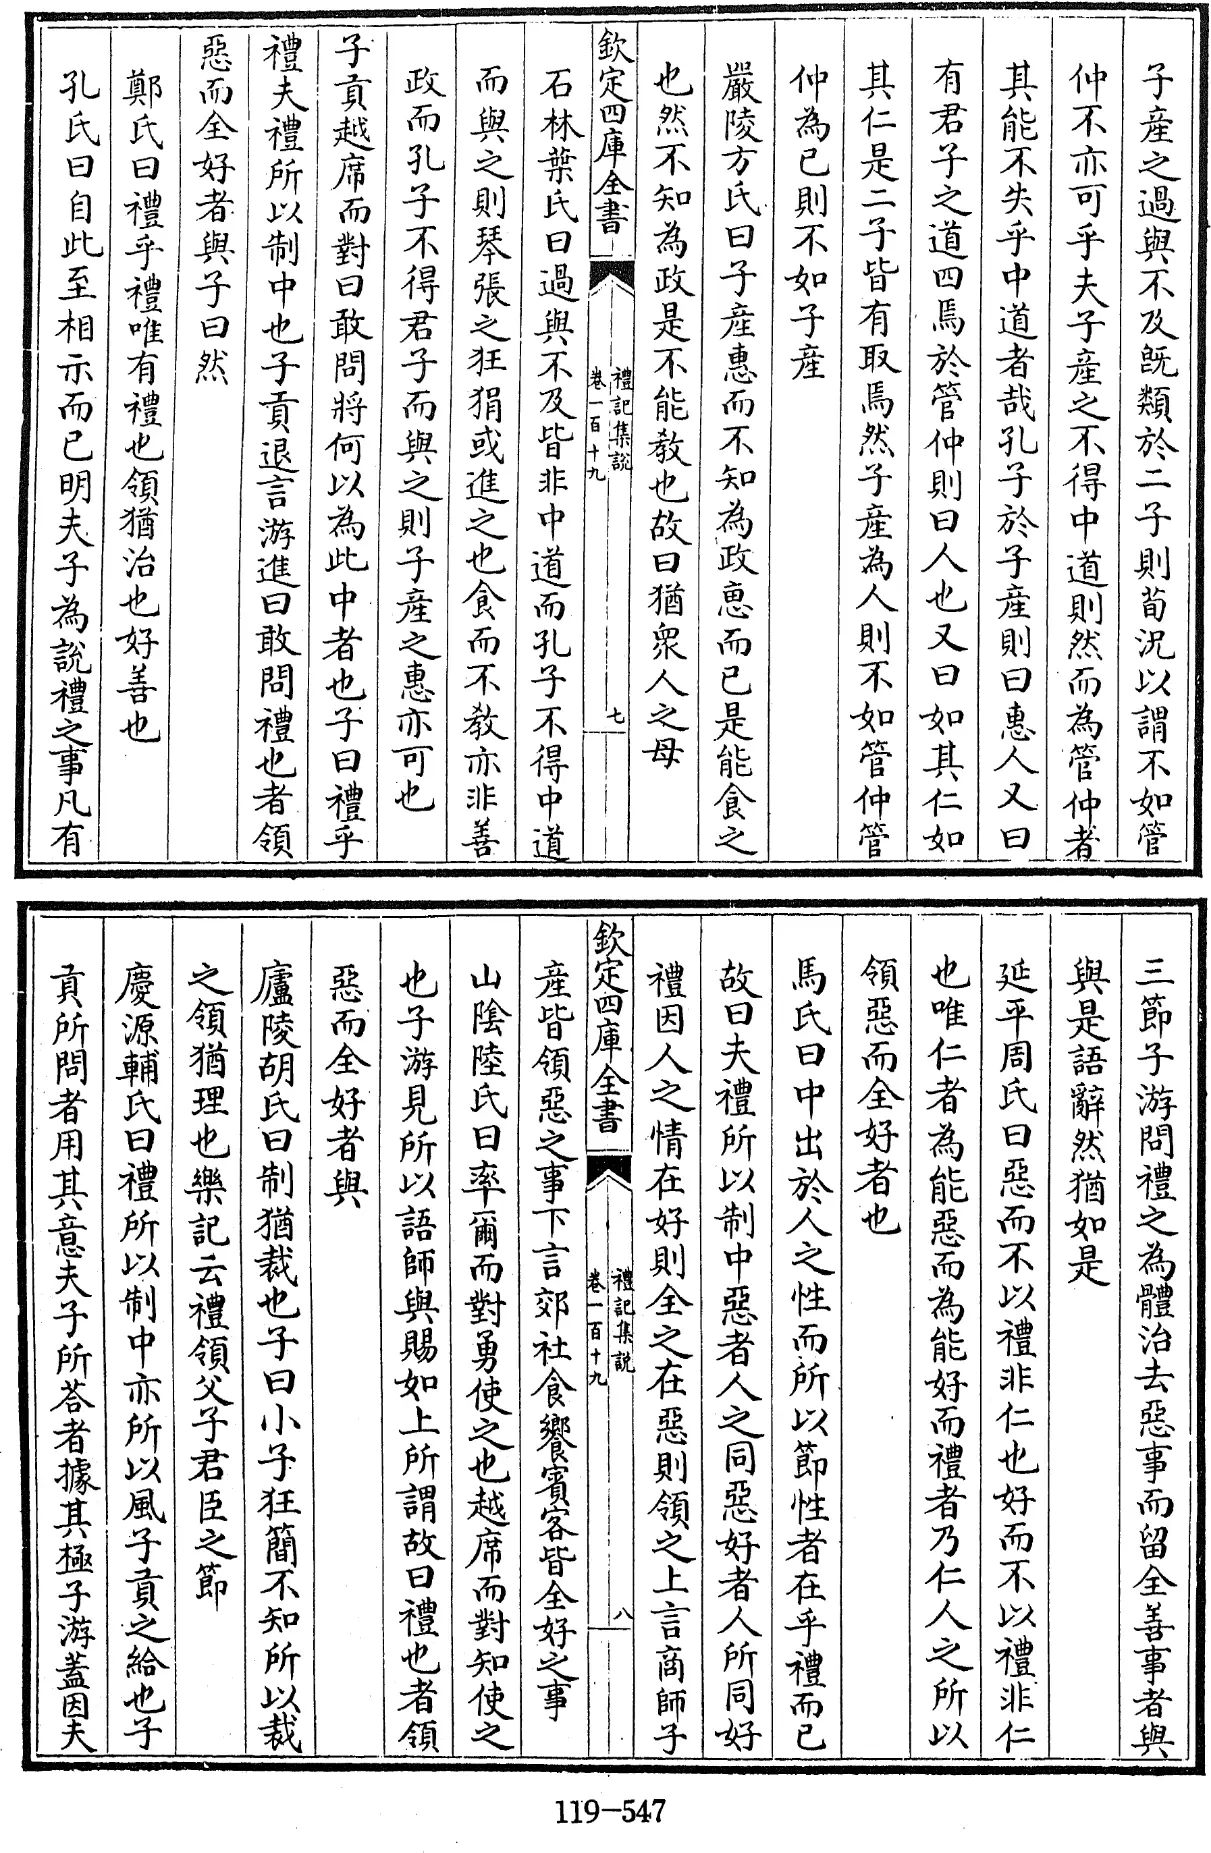 子產之過與不及旣類於二子則荀況以謂不如管
仲不亦可乎夫子產之不得中道則然而為管仲者
其能不失乎中道者哉孔子於子產則曰惠人又曰
有君子之道四焉於管仲則曰人也又曰如其仁如
其仁是二子皆有取焉然子產為人則不如管仲管
仲為已則不如子產
嚴陵方氏曰子產惠而不知為政惠而已是能食之
也然不知為政是不能敎也故曰猶衆人之母
欽定四庫全書
禮記集說
卷一百十九
七
石林葉氏曰過與不及皆非中道而孔子不得中道
而與之則琴張之狂狷或進之也食而不敎亦非善
政而孔子不得君子而與之則子產之惠亦可也
子貢越席而對曰敢問將何以為此中者也子曰禮乎
禮夫禮所以制中也子貢退言游進曰敢問禮也者領
惡而全好者與子曰然
鄭氏曰禮乎禮唯有禮也領猶治也好善也
孔氏曰自此至相示而已明夫子為說禮之事凡有
三節子游問禮之為體治去惡事而留全善事者與
與是語辭然猶如是
延平周氏曰惡而不以禮非仁也好而不以禮非仁
也唯仁者為能惡而為能好而禮者乃仁人之所以
領惡而全好者也
馬氏曰中出於人之性而所以節性者在乎禮而已
故曰夫禮所以制中惡者人之同惡好者人所同好
禮因人之情在好則全之在惡則領之上言商師子
欽定四庫全書
禮記集說
卷一百十九
八
產皆領惡之事下言郊社食饗賓客皆全好之事
山陰陸氏曰率爾而對勇使之也越席而對知使之
也子游見所以語師與賜如上所謂故曰禮也者領
惡而全好者與
廬陵胡氏曰制猶裁也子曰小子狂簡不知所以裁
之領猶理也樂記云禮領父子君臣之節
慶源輔氏曰禮所以制中亦所以風子貢之給也子
貢所問者用其意夫子所荅者據其極子游蓋因夫
119-547